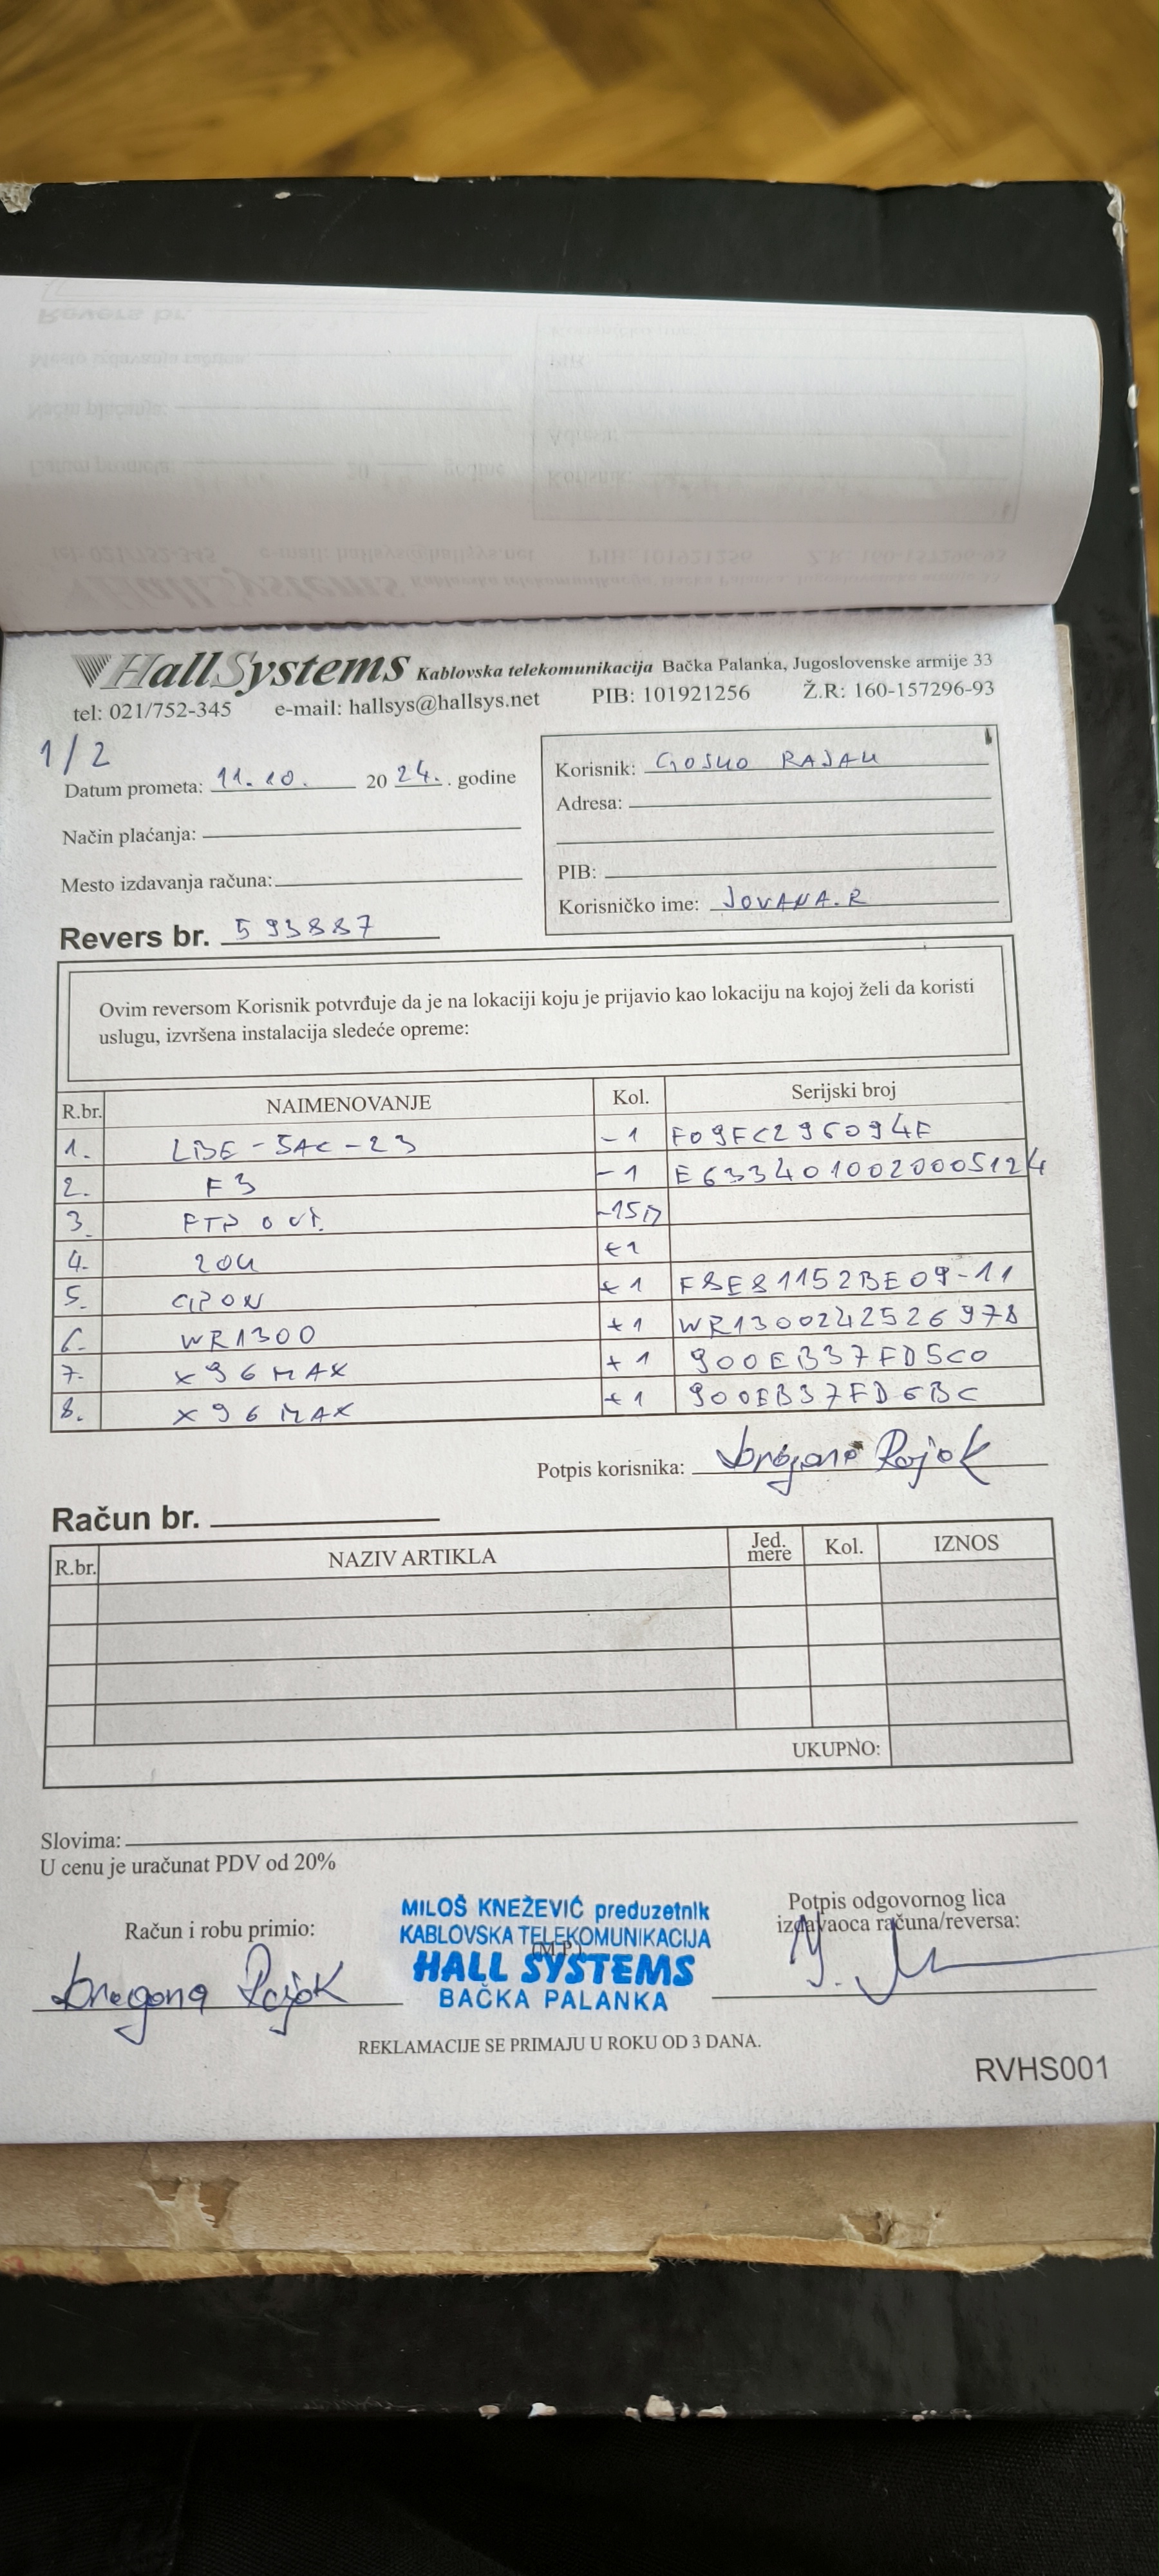 HallSystems Kablovska telekomunikacija Bačka Palanka, Jugoslovenske armije 33
tel: 021/752-345 e-mail: hallsys@hallsys.net PIB: 101921256 Ž.R: 160-157296-93
1/2
Datum prometa: 11.10. 2024. godine
Način plaćanja:
Mesto izdavanja računa:
Revers br. 593887
Korisnik: GOSKO RAJAK
Adresa:
PIB:
Korisničko ime: JOVANA.R
Ovim reversom Korisnik potvrđuje da je na lokaciji koju je prijavio kao lokaciju na kojoj želi da koristi
uslugu, izvršena instalacija sledeće opreme:
R.br. NAIMENOVANJE Kol. Serijski broj
1. LBE-5AC-23 -1 F09FC296094F
2. F3 -1 E6334010020005124
3. FTP out. -15m
4. ZOK +1
5. GPON +1 F8E81152BE09-11
6. WR1300 +1 WR1300242526978
7. X96MAX +1 900EB37FD5C0
8. X96MAX +1 900EB37FD6BC
Potpis korisnika: Dragana Rajak
Račun br.
R.br. NAZIV ARTIKLA Jed. mere Kol. IZNOS
UKUPNO:
Slovima:
U cenu je uračunat PDV od 20%
Račun i robu primio:
Dragana Rajak
MILOŠ KNEŽEVIĆ preduzetnik
KABLOVSKA TELEKOMUNIKACIJA
(M.P.)
HALL SYSTEMS
BAČKA PALANKA
Potpis odgovornog lica
izdavaoca računa/reversa:
REKLAMACIJE SE PRIMAJU U ROKU OD 3 DANA.
RVHS001